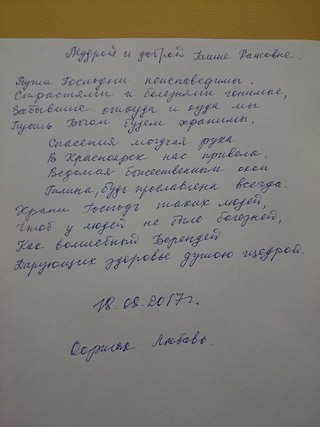 Мудрой и доброй Галине Раисовне.
Пути Господни неисповедимы.
Страстями и болезнями гонимые,
Забывшие откуда и куда мы
Пусть Богом будем хранимы.
Спасения могучая рука
В Красноярск нас привела.
Ведомая божественным оком
Галина, будь прославлена всегда.
Храни Господь таких людей,
Чтоб у людей не было болезней,
Как волшебный Берендей
Дарующих здоровье душою щедрой.
18.09.2017г.
Любовь.